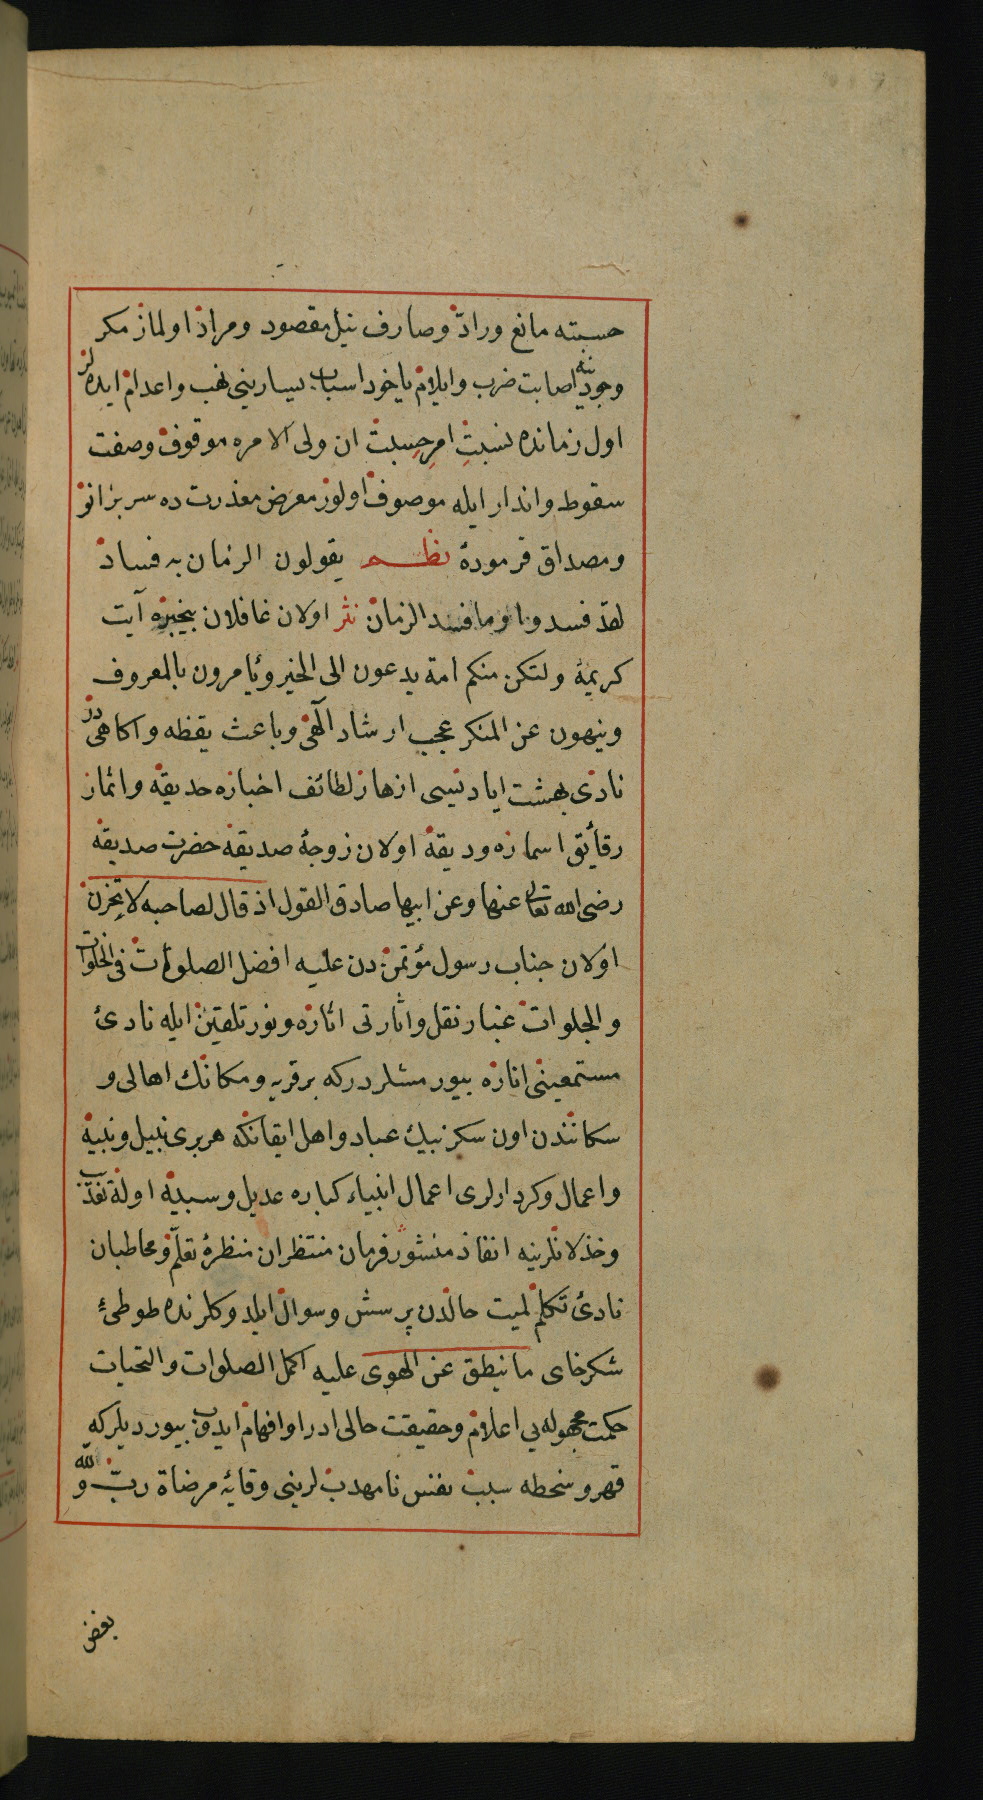 حسبته مانع وراد وصارف نيل مقصود ومراد اولماز مكر
وجودينه اصابت ضرب وايلام ياخود اسباب يساريني نهب واعدام ايده لر
اول زمانده نسبت امر حسبت ان ولى الامره موقوف وصفت
سقوط واندار ايله موصوف اولور معرض معذرت ده سر بزانو
ومصداق فرمودۀ نظم يقولون الزمان به فساد
لقد فسدوا وما فسد الزمان نثر اولان غافلان بيخبره آيت
كريمۀ ولتكن منكم امة يدعون الى الخير ويأمرون بالمعروف
وينهون عن المنكر عجب ارشاد آلهى وباعث يقظه واكاهى در
نادى بهشت اياد نيسى ازهار لطائف اخباره حديقه واثمار
رقايق اسماره وديقه اولان زوجۀ صديقه حضرت صديقه
رضى الله تعالى عنها وعن ابيها صادق القول اذ قال لصاحبه لا تحزن
اولان جناب رسول مؤتمن دن عليه افضل الصلوات فى الخلوات
والجلوات غبار نقل واثارتى اثاره ونور تلقين ايله نادئ
مستمعينى اناره بيورمشلردركه بر قريه ومكانك اهالى و
سكانندن اون سكز بيك عباد واهل ايقانكه هر برى نبيل ونبيه
واعمال وكردارلرى اعمال انبياء كباره عديل وشبيه اوله تعذيب
وخذلانلرينه انفاذ منشور فرمان منتظران منظرۀ تعلم ومخاطبان
نادئ تكلم لميت حالدن پرسش وسوال ايلدوكلرنده طوطئ
شكرخاى ما ينطق عن الهوى عليه اكمل الصلوات والتحيات
حكمت مجهوله يى اعلام وحقيقت حالى ادرا وافهام ايدوب بيورديلركه
قهر وسخطه سبب نفس نامهذبلرينى وقايۀ مرضاة رب و لله
بغض